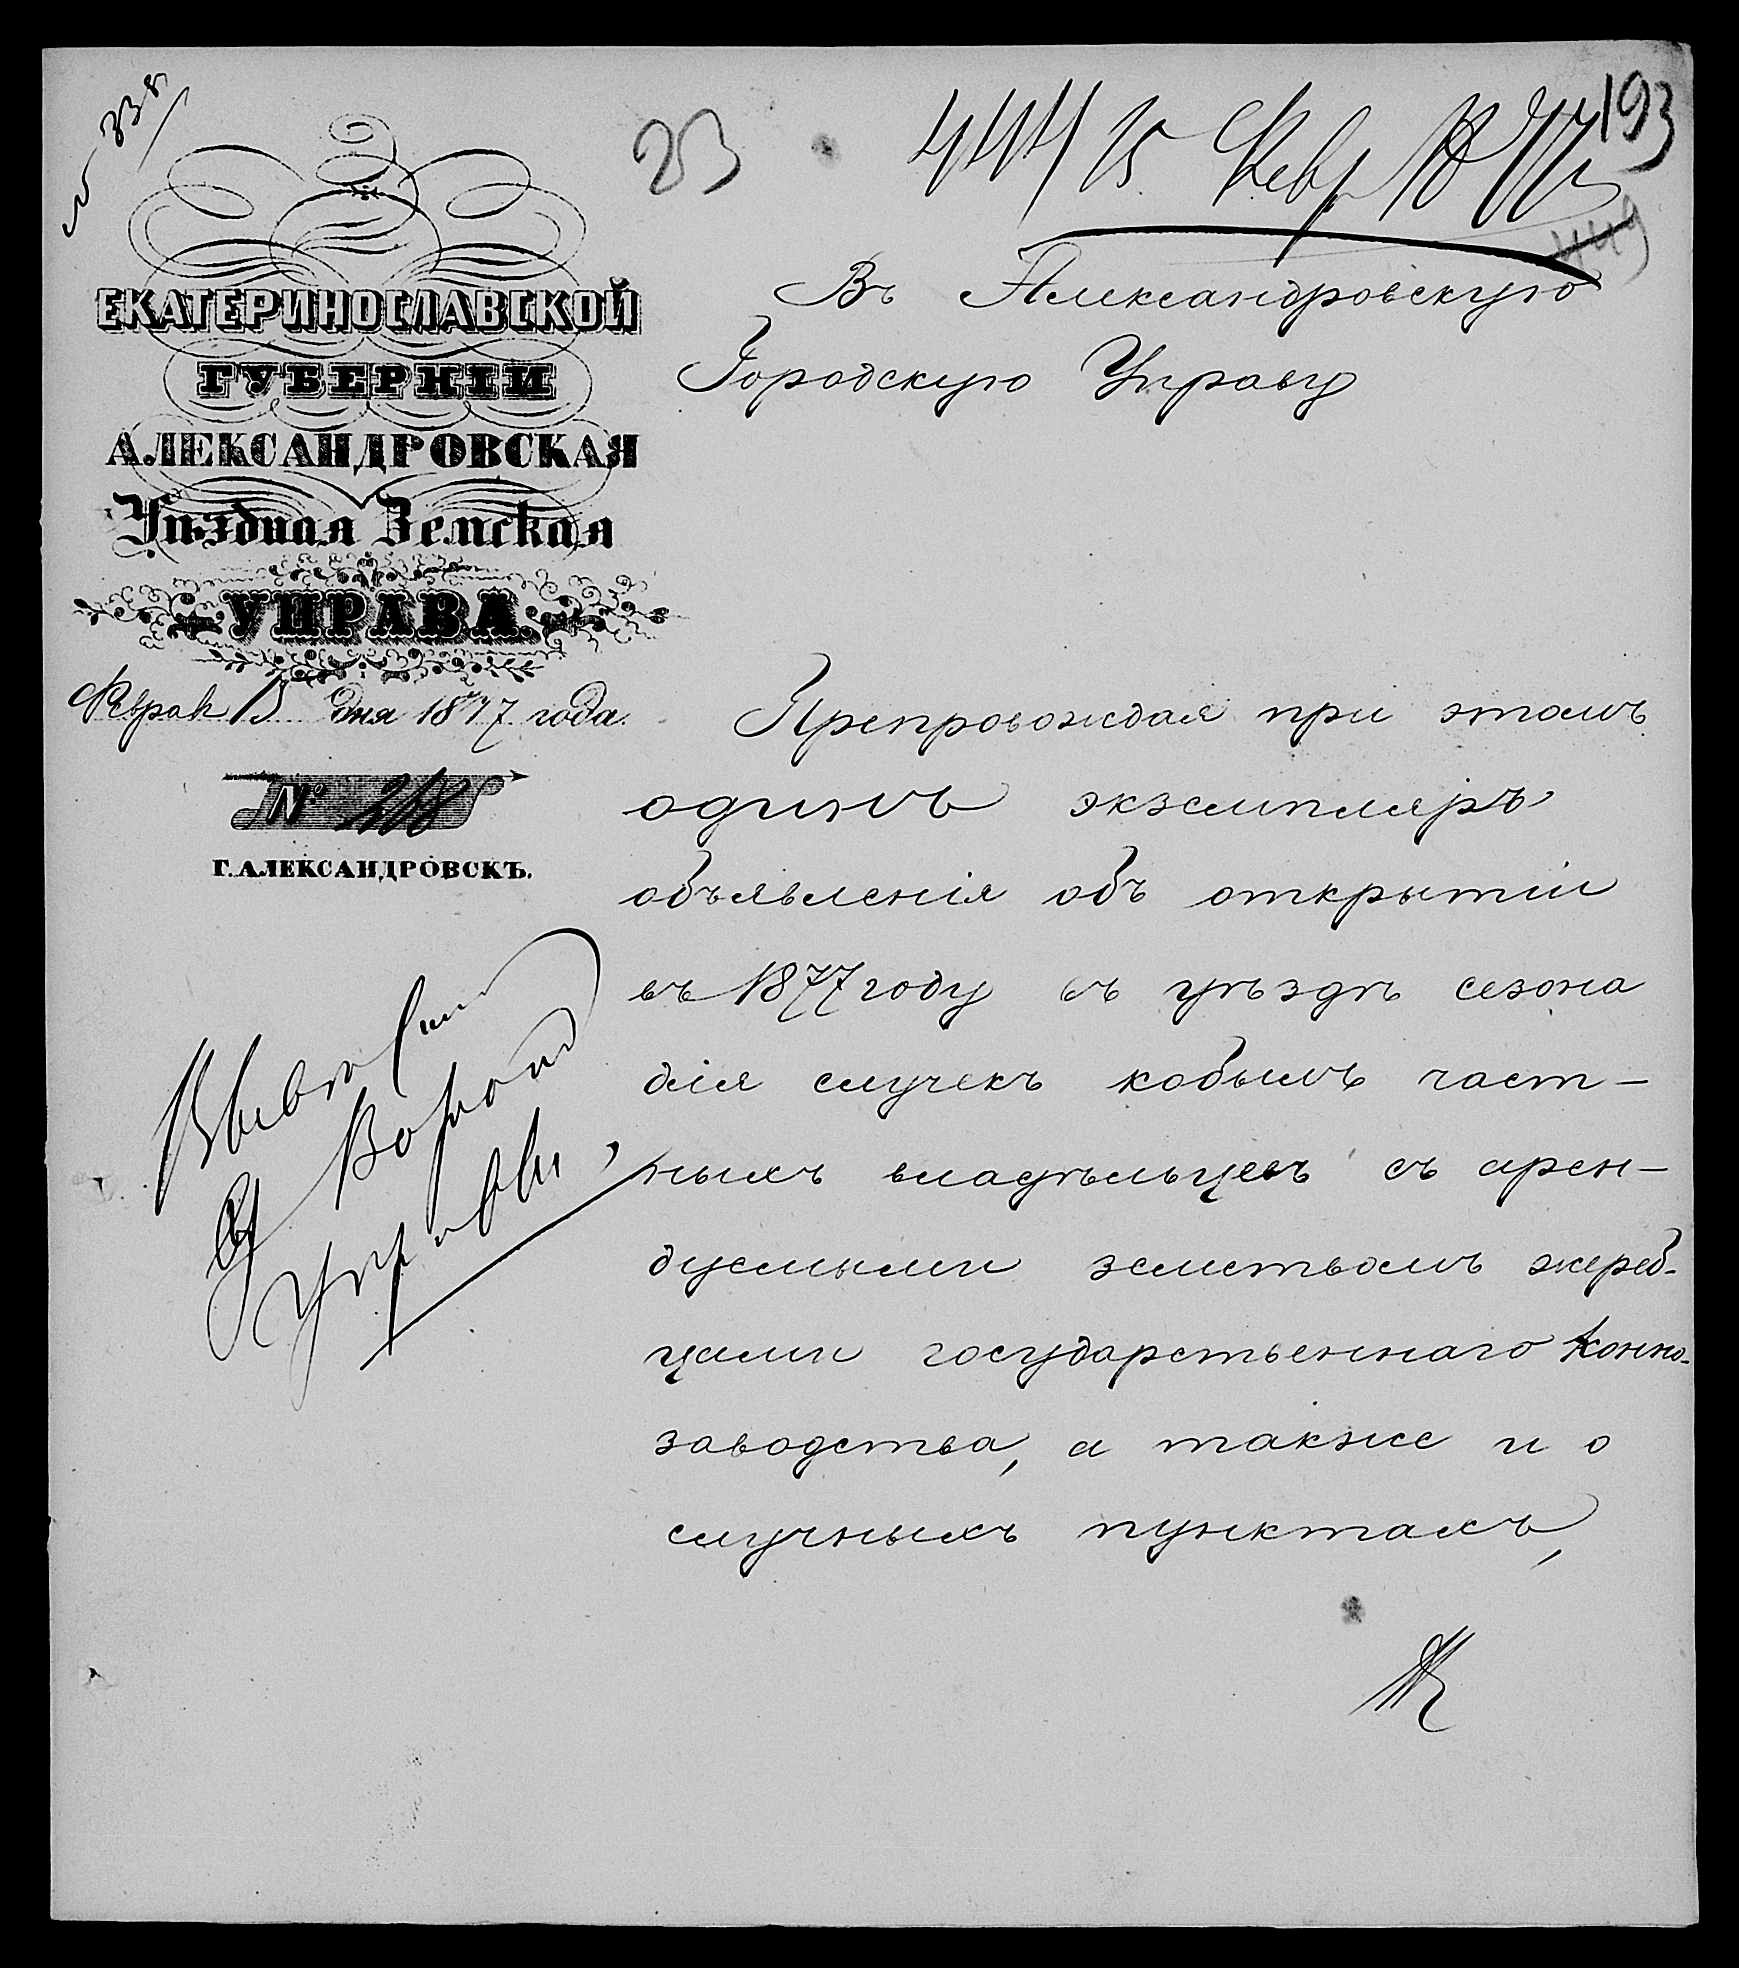 № 338
23
444 15 Февр 1877
193
449
ЕКАТЕРИНОСЛАВСКОЙ
ГУБЕРНІИ
АЛЕКСАНДРОВСКАЯ
Уѣздная Земская
УПРАВА.
Феврал 15 дня 1877 года.
№ 268
Г. АЛЕКСАНДРОВСКЪ.
Въ Александровскую
Городскую Управу
Препровождая при этомъ
одинъ экземпляръ
объявленія объ открытіи
въ 1877 году въ уѣздѣ сезона
для случекъ кобылъ част-
ныхъ владѣльцевъ съ арен-
дуемыми земствомъ жереб-
цами государственнаго Конно-
заводства, а также и о
случныхъ пунктахъ,
Управы